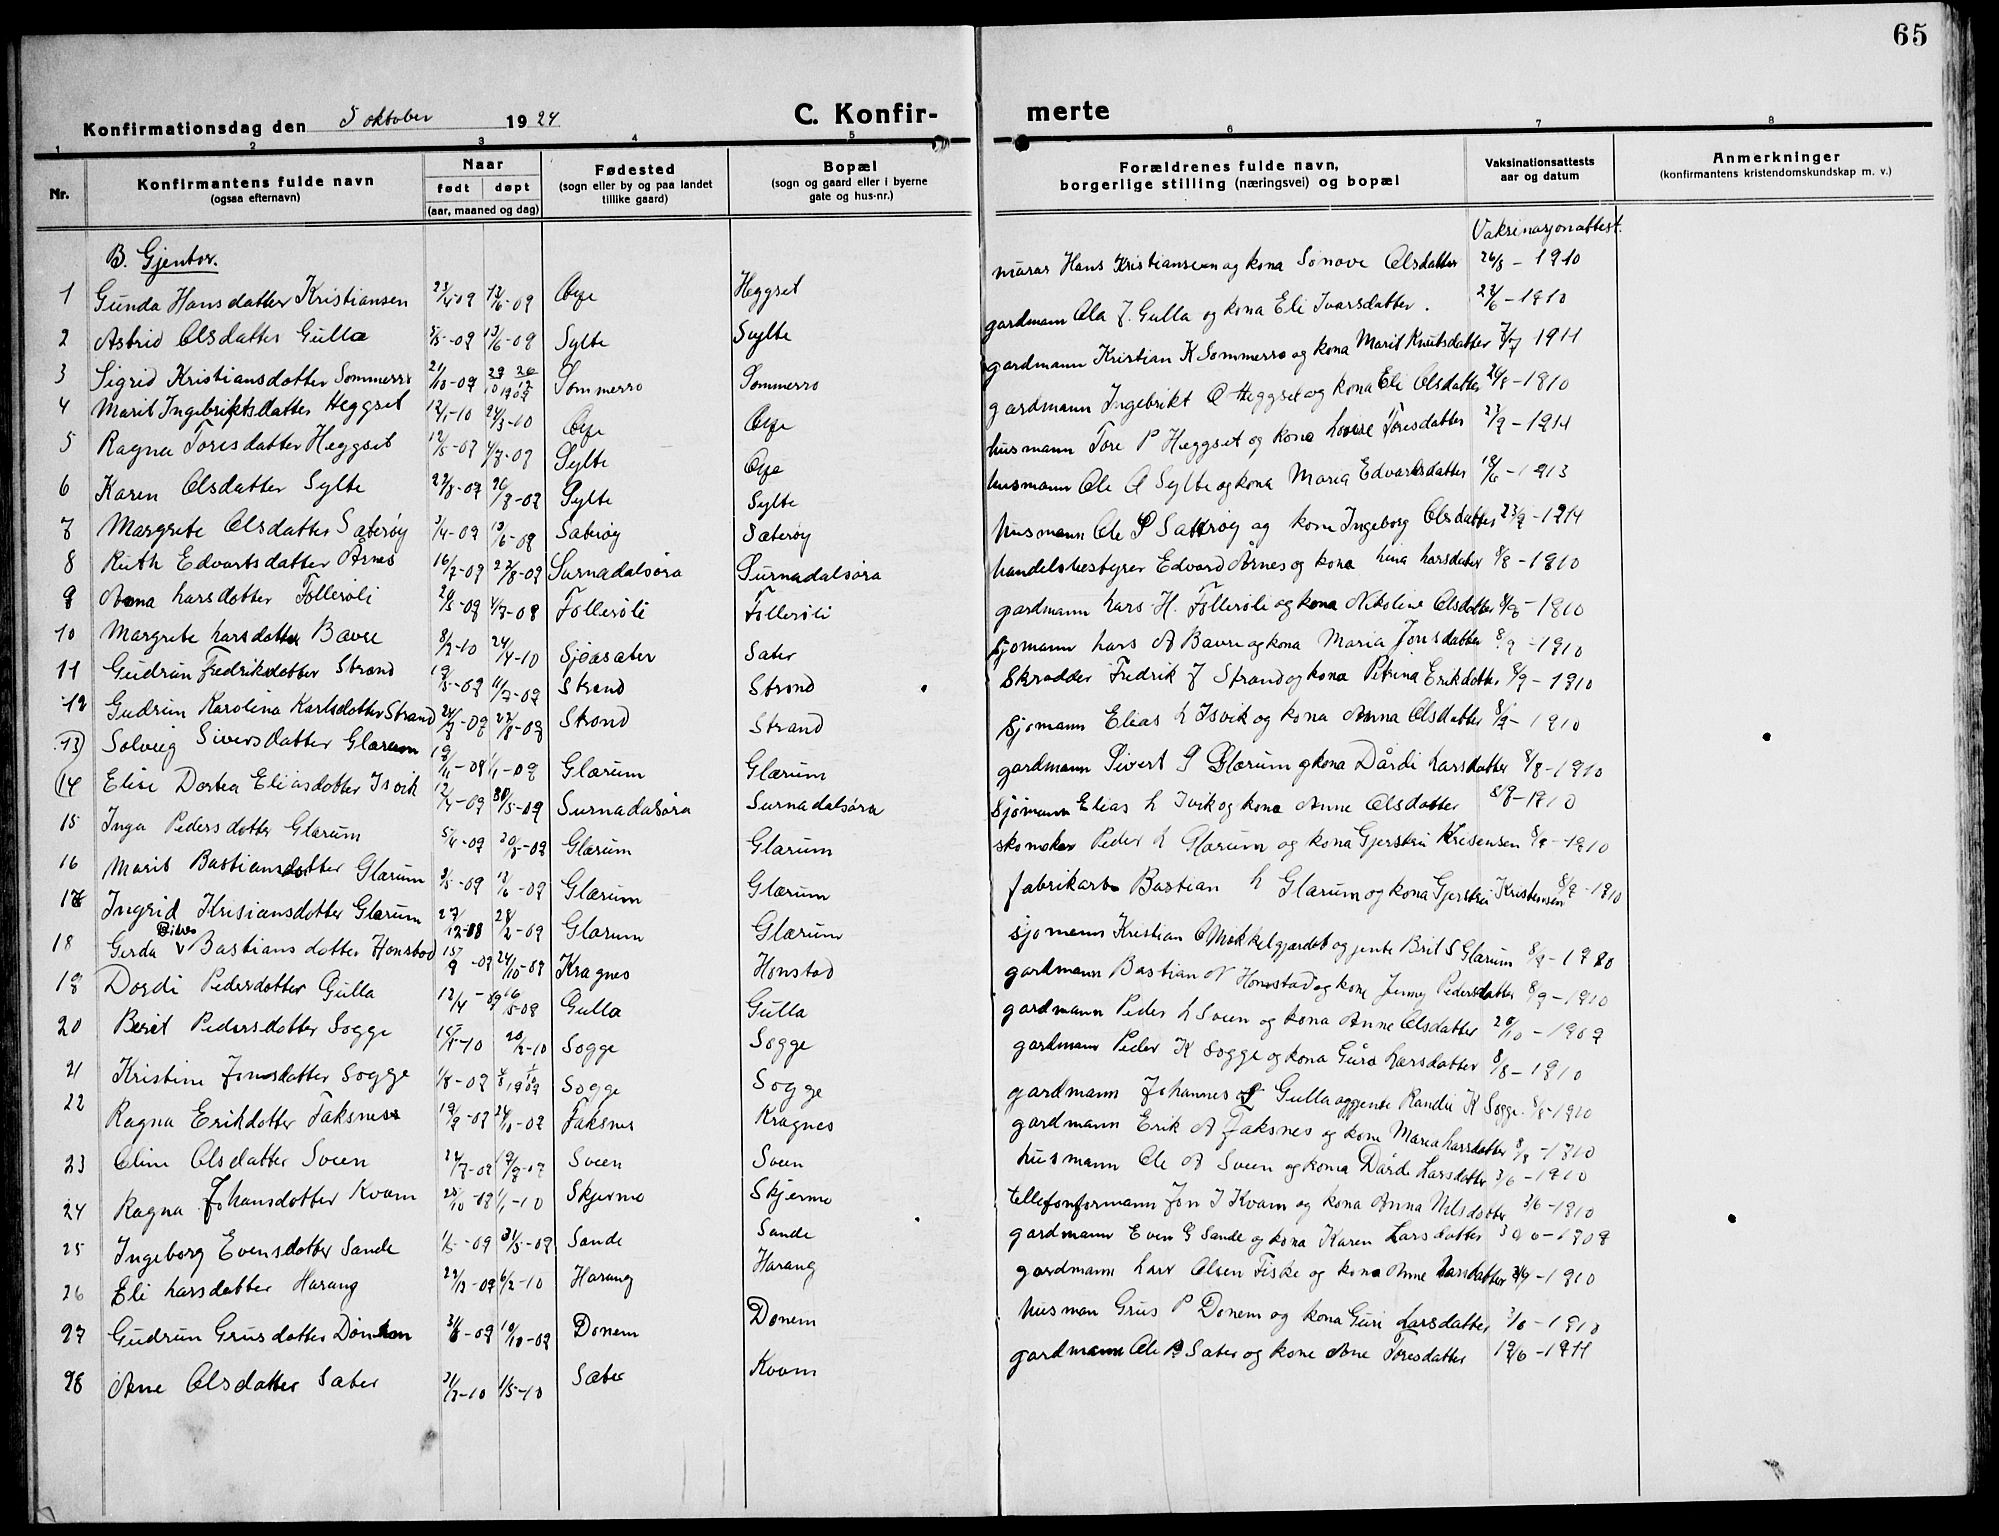 65
Konfirmationsdag den 5 oktober 1924
C. Konfir-
merte
1 2 3 4 5 6 7 8
Nr.
Konfirmantens fulde navn
(ogsaa efternavn)
Naar
født døpt
(aar, maaned og dag)
Fødested
(sogn eller by og paa landet
tillike gaard)
Bopæl
(sogn og gaard eller i byerne
gate og hus-nr.)
Forældrenes fulde navn,
borgerlige stilling (næringsvei) og bopæl
Vaksinationsattests
aar og datum
Anmerkninger
(konfirmantens kristendomskundskap m. v.)
Vaksinasjonattest.
B. Gjentor.
1 Gunda Hansdatter Kristiansen 23/4-09 12/6-09 Øye Heggset murar Hans Kristiansen og kona Sonove Olsdatter 26/8-1910
2 Astrid Olsdatter Gulla 5/5-09 13/6-09 Sylte Sylte gardmann Ola J. Gulla og kona Eli Ivarsdatter. 22/6-1910
3 Sigrid Kristiansdotter Sommerro 21/10-09 Sommerro Sommerro gardmann Kristian K Sommerro og kona Marit Knutsdatter 7/7 1911
4 Marit Ingebriktsdatter Heggset 12/1-10 24/3-10 Øye Øye gardmann Ingebrikt O Heggset og kona Eli Olsdatter 26/8-1910
5 Ragna Toresdatter Heggset 12/5-09 4/7-09 Sylte Øye husmann Tore P Heggset og kona Lovise Toresdatter 23/9-1914
6 Karen Olsdatter Sylte 22/8-09 26/9-09 Sylte Sylte husmann Ole A Sylte og kona Maria Edvardsdatter 18/6-1913
7 Margrete Olsdatter Sæterøy 3/4-09 13/6-09 Sæterøy Sæterøy husmann Ole P Sæterøy og kona Ingeborg Olsdatter 23/9-1914
8 Ruth Edvartsdatter Årnes 16/7-09 22/8-09 Surnadalsøra Surnadalsøra handelsbestyrer Edvard Årnes og kona Lina Larsdatter 8/8-1910
9 Anna Larsdotter Tøllerøli 20/5-09 4/7-09 Tøllerøli Tøllerøli gardmann Lars H. Tøllerøli og kona Nikoline Olsdotter 8/8-1910
10 Margrete Larsdotter Bævre 8/2-10 24/4-10 Sjøasæter Sæter sjømann Lars A Bævre og kona Maria Jonsdatter 8/9-1910
11 Gudrun Fredriksdotter Strand 19/5-09 11/7-09 Strand Strand Skrædder Fredrik J Strand og kona Petrina Erikdotter 8/9-1910
12 Gudrun Karolina Karlsdotter Strand 24/7-09 22/8-09 Strand Strand sjømann Elias L Isvik og kona Anna Olsdatter 8/9-1910
13 Solveig Siversdatter Glærum Glærum Glærum gardmann Sivert P Glærum og kona Dårdi Larsdatter 8/8-1910
14 Elise Dortea Eliasdotter Isvik 12/4-09 30/5-09 Surnadalsøra Surnadalsøra sjømann Elias L Isvik og kona Anne Olsdatter 8/8-1910
15 Inga Pedersdotter Glærum 5/4-09 Glærum Glærum skomaker Peder L Glærum og kona Gjerstru Kristensen 8/9-1910
16 Marit Bastiansdotter Glærum 3/5-09 13/6-09 Glærum Glærum fabrikarb Bastian L Glærum og kona Gjerstru Kristensen 8/9-1910
17 Ingrid Kristiansdotter Glærum 27/12-08 28/2-09 Glærum Glærum sjømann Kristian O Mokkelgjærdet og jente Brit S Glærum 8/9-1910
18 Gerda Bastiansdotter Honstad 15/9-09 24/10-09 Kragnes Honstad gardmann Bastian N Honstad og kone Jenny Pedersdatter 8/9-1910
19 Dordi Pedersdotter Gulla 12/4-09 16/5-09 Gulla Gulla gardmann Peder L Sveen og kona Anne Olsdatter 20/10-1909
20 Berit Pedersdotter Sogge 15/1-10 20/2-10 Sogge Sogge gardmann Peder K Sogge og kona Guro Larsdatter 8/8-1910
21 Kristine Jonsdatter Sogge 1/8-09 Sogge Sogge gardmann Johannes Gulla og jente Randi K Sogge 8/8-1910
22 Ragna Erikdotter Faksnes 19/9-09 24/10-09 Faksnes Kragnes gardmann Erik A Faksnes og kone Maria Larsdotter 8/8-1910
23 Oline Olsdatter Sveen Sveen Sveen husmann Ole A Sveen og kona Dårdi Larsdotter 3/6-1910
24 Ragna Johansdotter Kvam 25/10-09 1/1-10 Skjermo Skjermo tellefonformann Jon J Kvam og kona Anna Nilsdotter 3/6-1910
25 Ingeborg Evensdotter Sande 1/5-09 31/5-09 Sande Sande gardmann Even G Sande og kona Karen Larsdatter 30/6-1909
26 Eli Larsdotter Harang 6/2-10 Harang Harang gardmann Lars Olsen Fiske og kona Anne Larsdatter -1910
27 Gudrun Grusdotter Dönem 31/8-09 10/10-09 Donem Donem husman Grus P Donem og kona Guri Larsdatter 3/6-1910
28 Ane Olsdatter Sæter 31/3-10 1/5-10 Sæter Kvam gardmann Ole P Sæter og kone Ane Toresdatter 19/6-1911